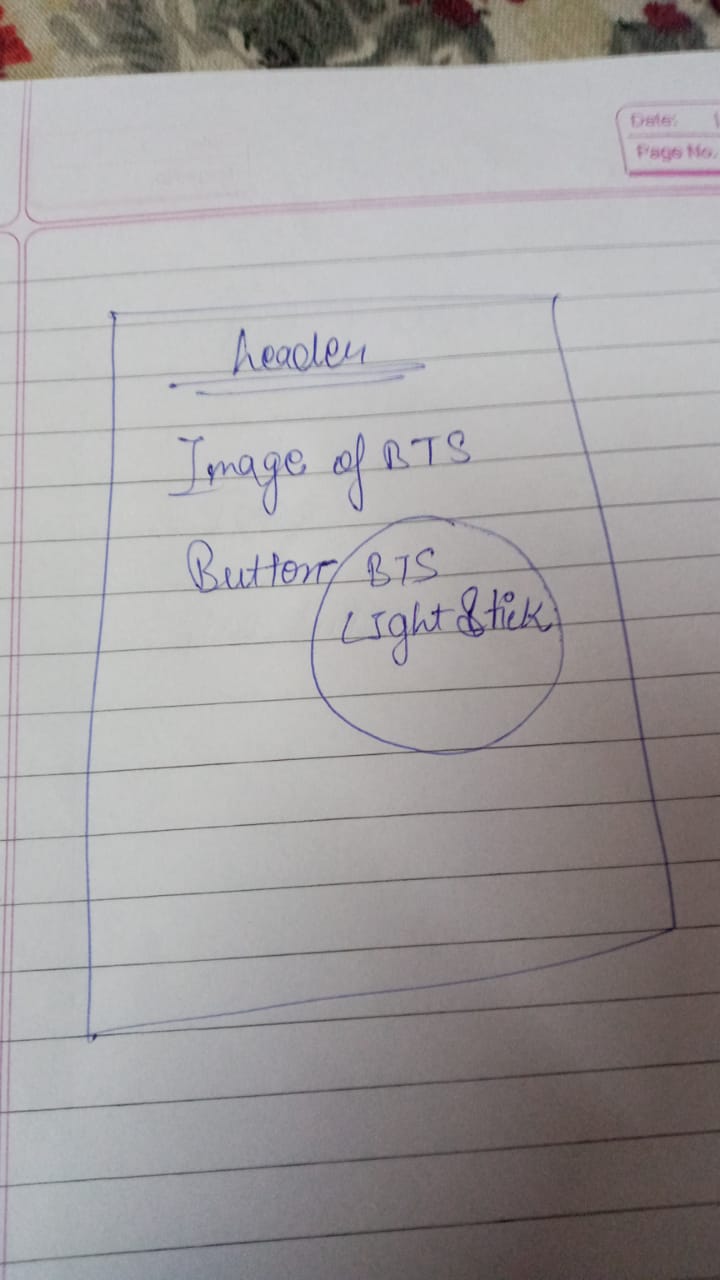 Date:
Page No.
header
Image of BTS
Button BTS
Light Stick